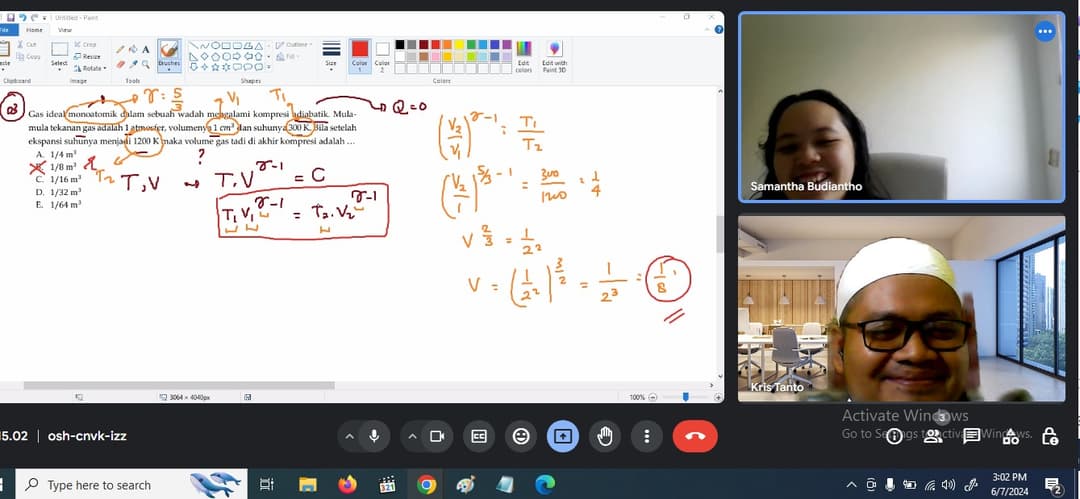 Untitled - Paint
File Home View
Cut
Copy
Paste
Clipboard
Select
Crop
Resize
Rotate
Image
Tools
Brushes
Outline
Fill
Shapes
Size
Color 1
Color 2
Colors
Edit colors
Edit with Paint 3D
γ = 5/3
V₁
T₁
Q = 0
Gas ideal monoatomik dalam sebuah wadah mengalami kompresi adiabatik. Mula-
mula tekanan gas adalah 1 atmosfer, volumenya 1 cm³ dan suhunya 300 K. Bila setelah
ekspansi suhunya menjadi 1200 K maka volume gas tadi di akhir kompresi adalah ...
A. 1/4 m³
B. 1/8 m³
C. 1/16 m³
D. 1/32 m³
E. 1/64 m³
T₂
?
T, V → T.V^γ-1 = C
T₁ V₁^γ-1 = T₂ . V₂^γ-1
(V₂/V₁)^γ-1 = T₁/T₂
(V₂/1)^5/3 - 1 = 300/1200 = 1/4
V^2/3 = 1/2²
V = (1/2²)^3/2 = 1/2³ = 1/8
3064 × 4040px
100%
Samantha Budiantho
Kris Tanto
Activate Windows
Go to Settings to activate Windows.
3
15.02 | osh-cnvk-izz
CC
Type here to search
321
3:02 PM
6/7/2024
2